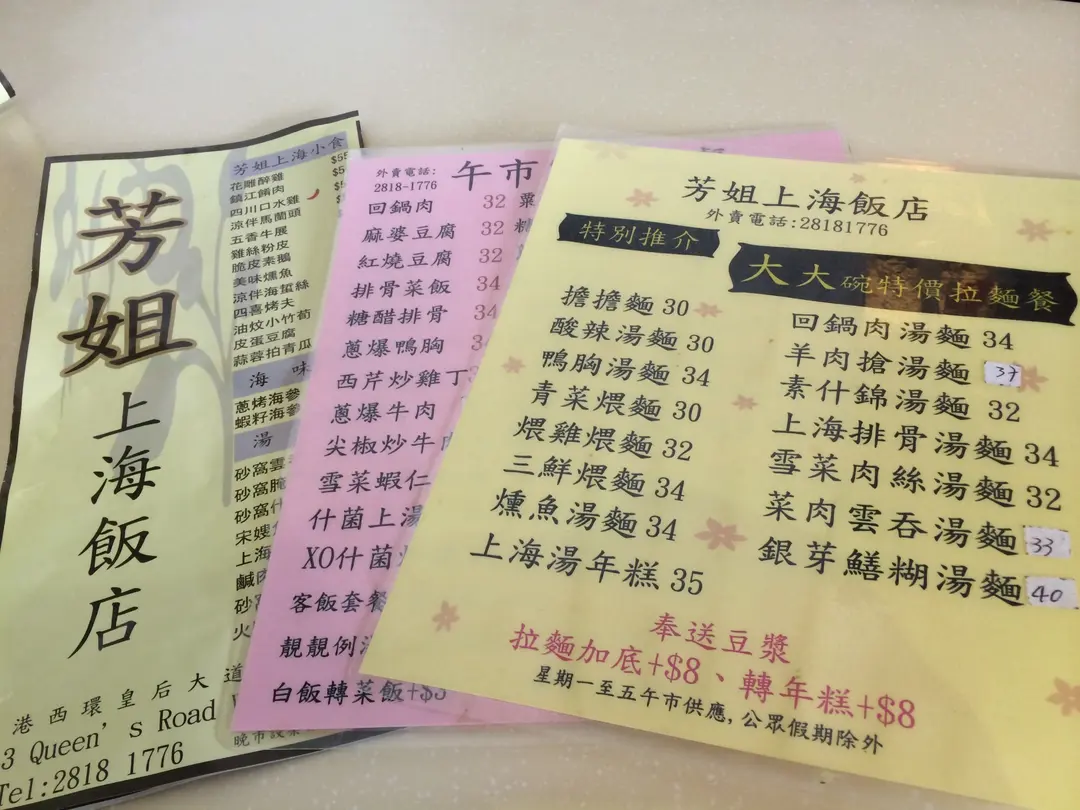 芳姐
上海飯店
港西環皇后大道
3 Queen's Road
Tel:2818 1776
芳姐上海小食
花雕醉雞 $55
鎮江餚肉
四川口水雞
涼伴馬蘭頭
五香牛展
雞絲粉皮
脆皮素鵝
美味燻魚
涼伴海蜇絲
四喜烤夫
油炆小竹荀
皮蛋豆腐
蒜蓉拍青瓜
海味
蔥烤海參
蝦籽海參
湯
砂窩雲
砂窩腌
砂窩什
宋嫂
上海
鹹肉
砂窩
火
外賣電話:
2818-1776
午市
回鍋肉 32
麻婆豆腐 32
紅燒豆腐 32
排骨菜飯 34
糖醋排骨 34
蔥爆鴨胸
西芹炒雞丁
蔥爆牛肉
尖椒炒牛肉
雪菜蝦仁
什菌上湯
XO什菌
客飯套餐
靚靚例湯
白飯轉菜飯+$3
粟
糖
芳姐上海飯店
外賣電話:28181776
特別推介
擔擔麵 30
酸辣湯麵 30
鴨胸湯麵 34
青菜煨麵 30
煨雞煨麵 32
三鮮煨麵 34
燻魚湯麵 34
上海湯年糕 35
大大碗特價拉麵餐
回鍋肉湯麵 34
羊肉搶湯麵 37
素什錦湯麵 32
上海排骨湯麵 34
雪菜肉絲湯麵 32
菜肉雲吞湯麵 33
銀芽鱔糊湯麵 40
奉送豆漿
拉麵加底+$8、轉年糕+$8
星期一至五午市供應,公眾假期除外